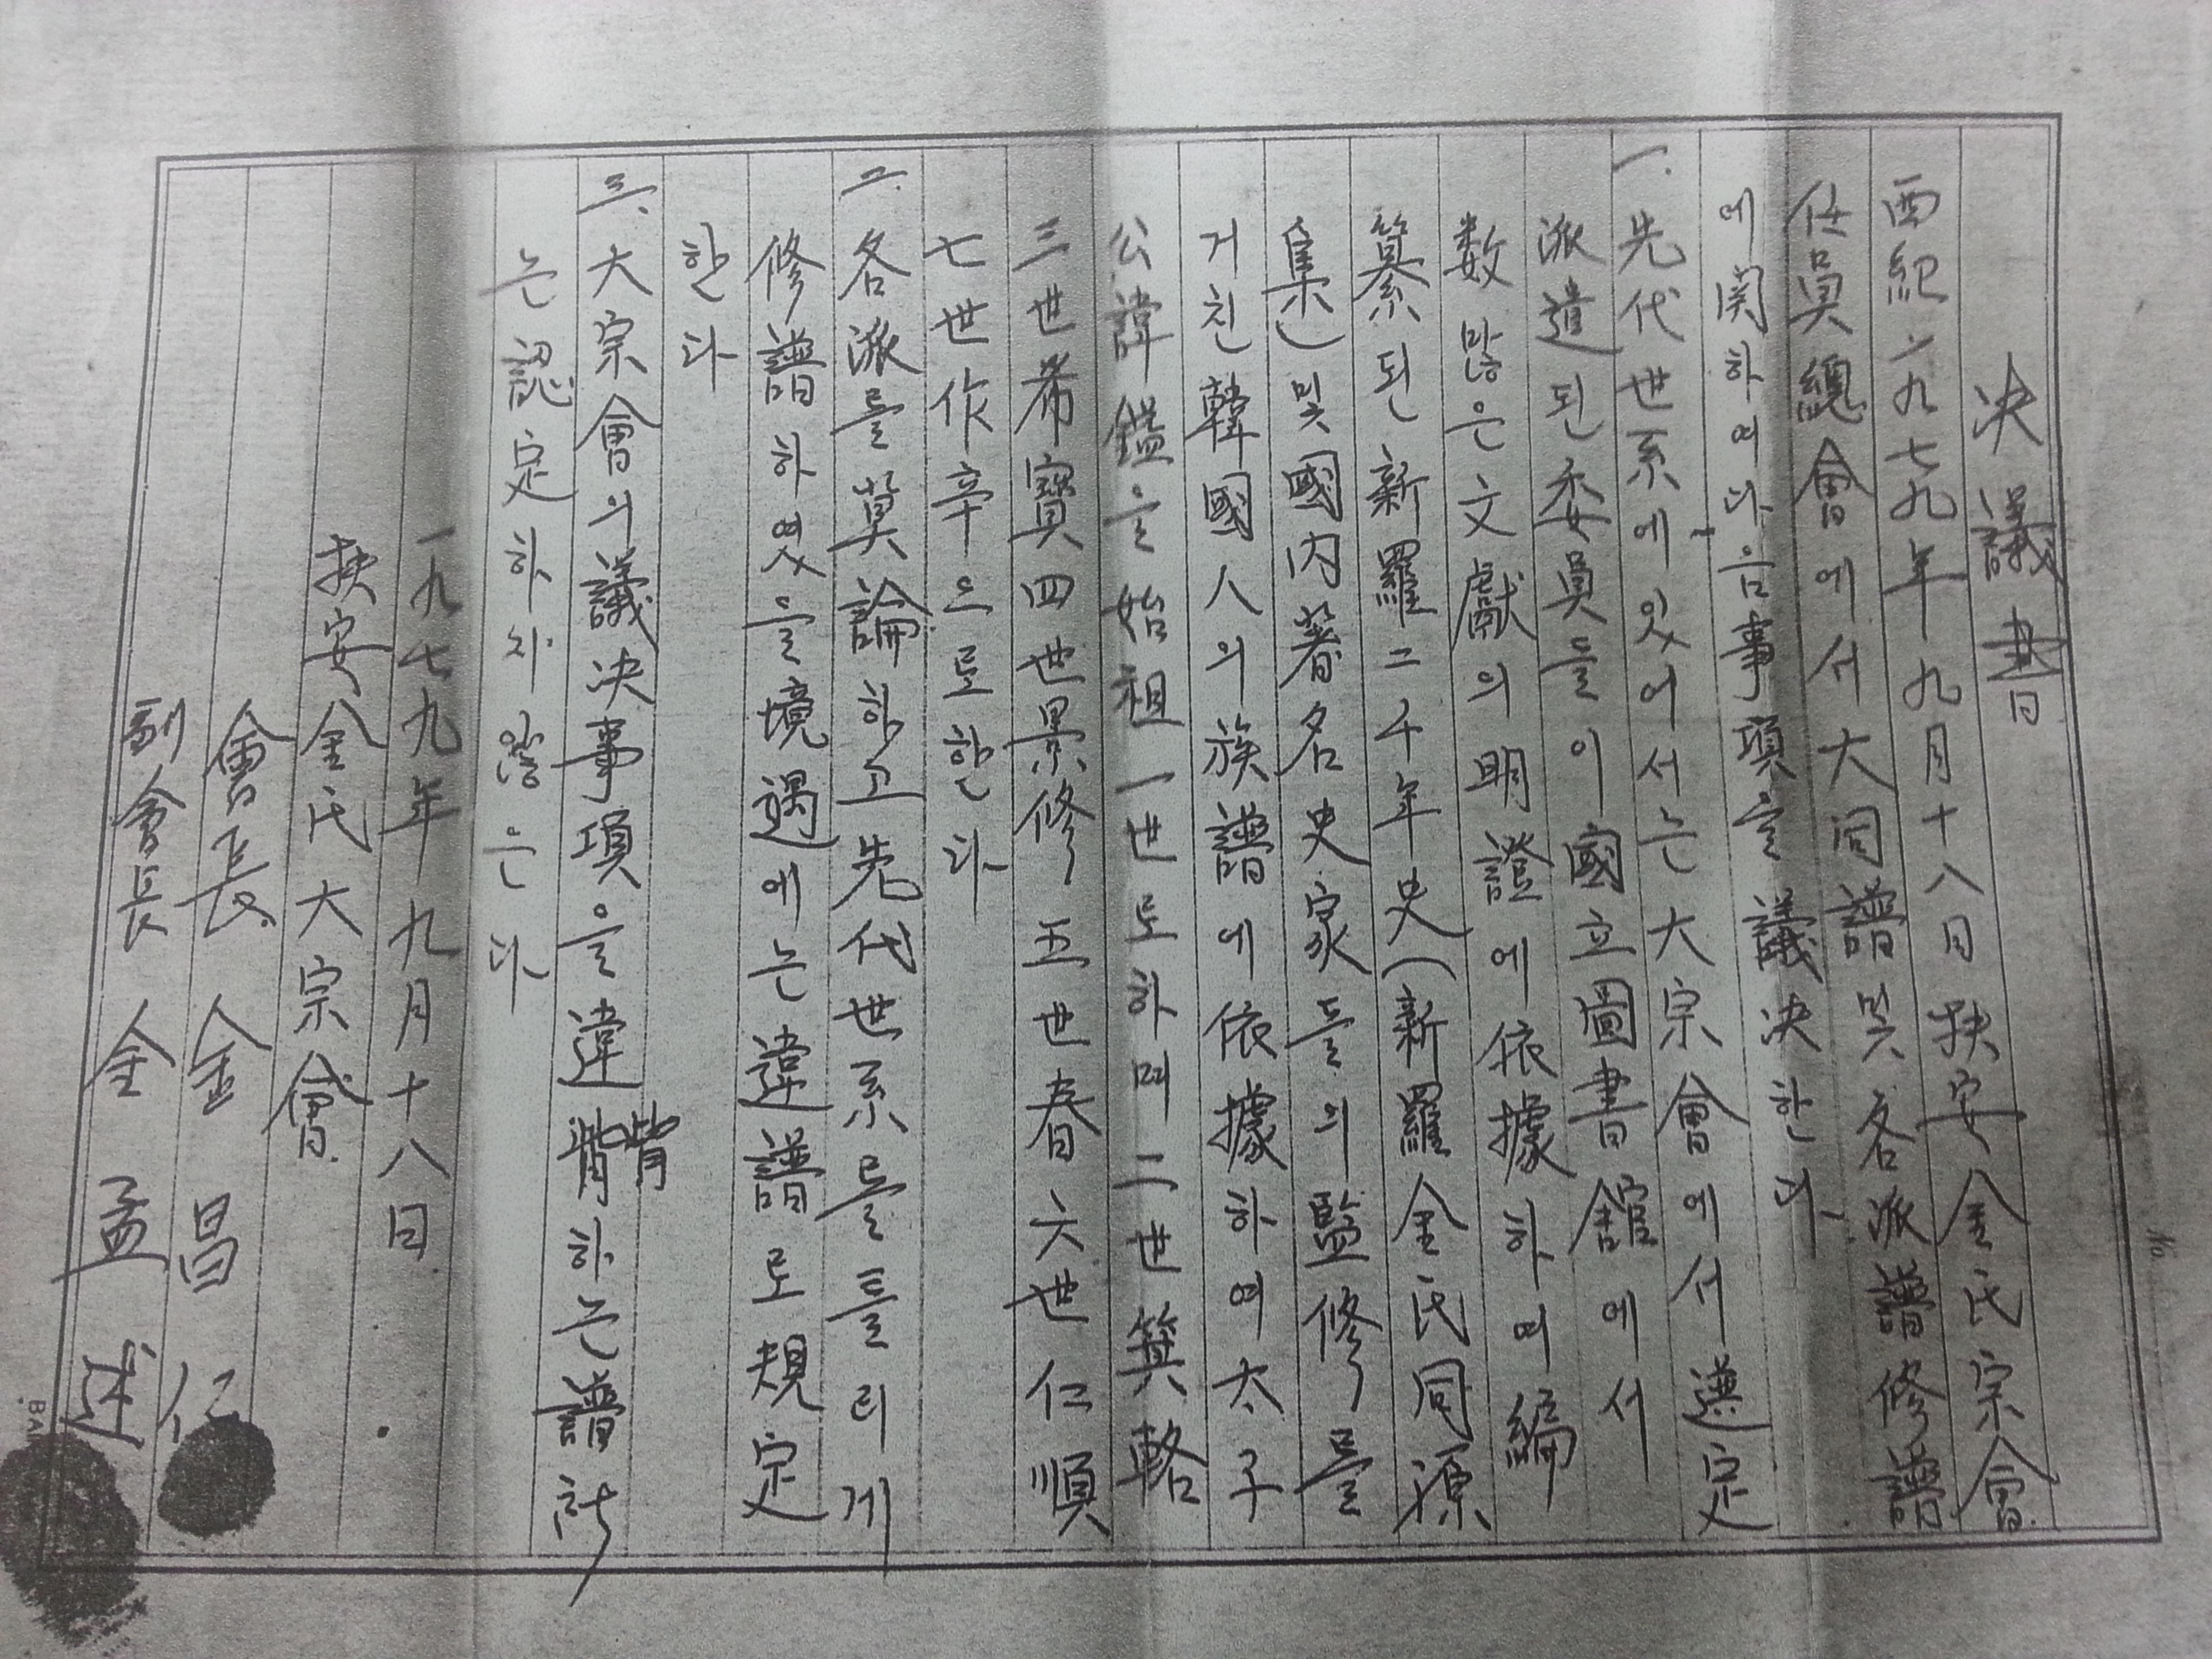 決議書
西紀一九七九年九月十八日扶安金氏宗會
任員總會에서大同譜및各派譜修譜
에関하여다음事項을議決한다.
一. 先代世系에있어서는大宗會에서遴定
派遣된委員들이國立圖書館에서
数많은文獻의明證에依據하며編
纂된新羅二千年史(新羅金氏同源
集)및國内著名史家들의監修를
거친韓國人의族譜에依據하여太子
公諱鎰을始祖一世로하며二世箕輅
三世希寶四世景修五世春六世仁順
七世作辛으로한다
二. 各派를莫論하고先代世系를틀리게
修譜하였을境遇에는違譜로規定
한다
三. 大宗會의議決事項을違背하는譜冊
背
는認定하지않은다
一九七九年九月十八日.
扶安金氏大宗會.
會長 金昌仁
副會長 金孟述
No.
BA